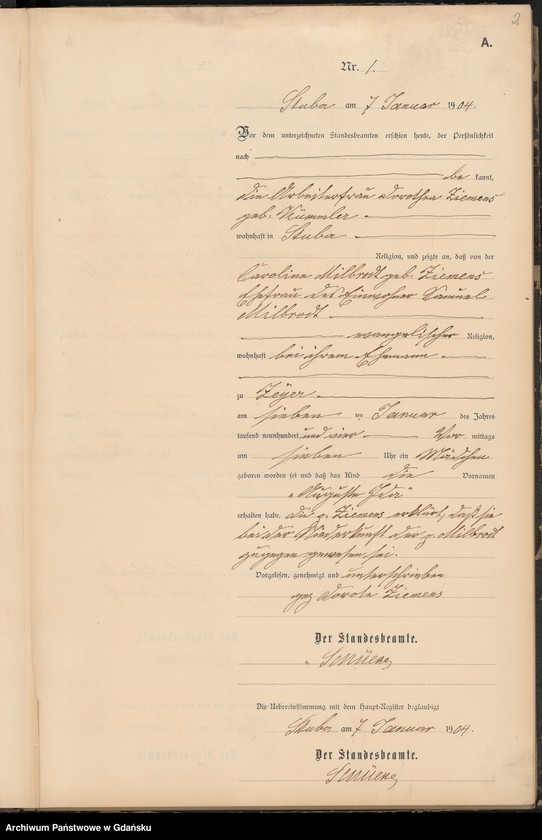 2
A.
Nr. 1.
Stuba am 7 Januar 1904.
Vor dem unterzeichneten Standesbeamten erschien heute, der Persönlichkeit
nach
be kannt,
die Arbeiterfrau Dorothea Ziemens
geb. Kümmler
wohnhaft in Stuba
Religion, und zeigte an, daß von der
Caroline Milbrodt geb. Ziemens
Ehefrau des Einwohner Samuel
Milbrodt
evangelischer Religion,
wohnhaft bei ihrem Ehemann
zu Zeyer
am sieben ten Januar des Jahres
tausend neunhundert und vier Vor mittags
um sieben Uhr ein Mädchen
geboren worden sei und daß das Kind die Vornamen
"Auguste Ida"
erhalten habe. Die p. Ziemens erklärt, daß sie
bei der Niederkunft der p. Milbrodt
zugegen gewesen sei.
Vorgelesen, genehmigt und unterschrieben
gez Dorote Ziemens
Der Standesbeamte.
Die Uebereinstimmung mit dem Haupt-Register beglaubigt
Stuba am 7 Januar 1904.
Der Standesbeamte.
Archiwum Państwowe w Gdańsku